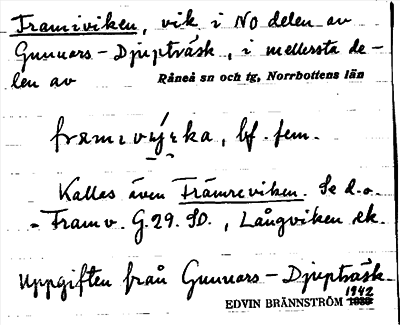 Framiviken, vik i NO delen av
Gunnars-Djupträsk, i mellersta de-
len av Råneå sn och tg, Norrbottens län
bf. fem.
Kallas även Främreviken. Se d.o.
- Framv. G.29. SO., Långviken ek.
Uppgiften från Gunnars-Djupträsk
1942
EDVIN BRÄNNSTRÖM